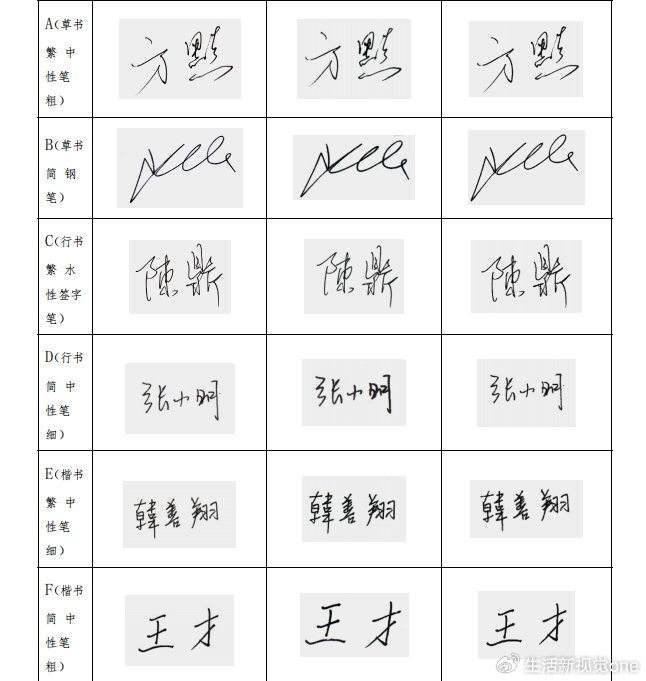 A(草书
繁 中
性笔
粗)
方點 方點 方點
B(草书
简 钢
笔)
C(行书
繁 水
性签字
笔)
陳鼎 陳鼎 陳鼎
D(行书
简 中
性笔
细)
张小明 张小明 张小明
E(楷书
繁 中
性笔
细)
韓善翔 韓善翔 韓善翔
F(楷书
简 中
性笔
粗)
王才 王才 王才
生活新视觉one